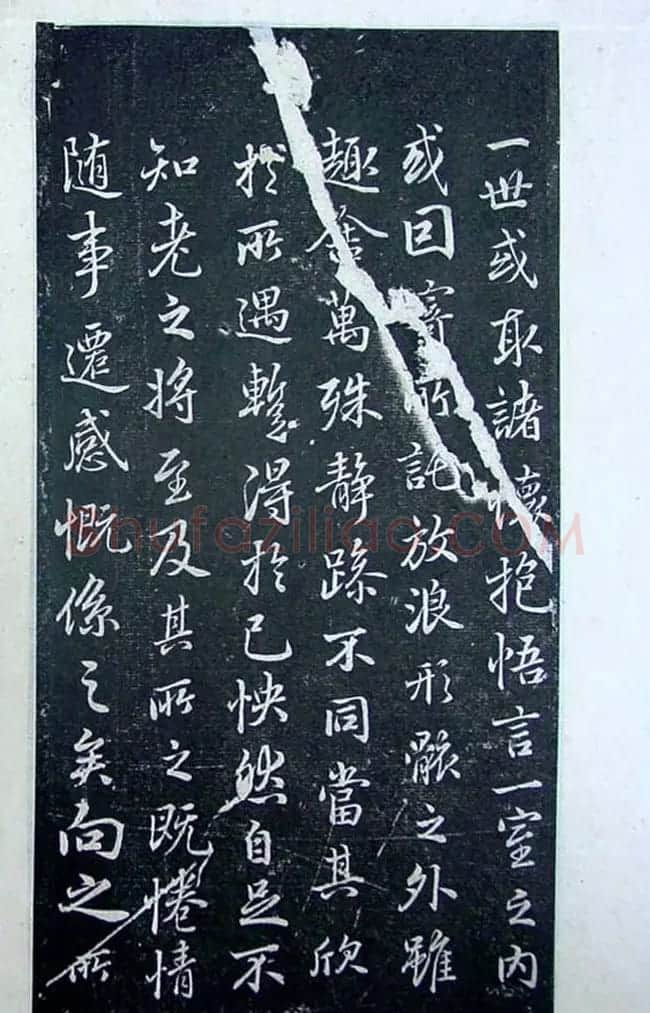 一世或取諸懷抱悟言一室之内
或因寄所託放浪形骸之外雖
趣舍萬殊静躁不同當其欣
於所遇蹔得於己怏然自足不
知老之將至及其所之既惓情
随事遷感慨係之矣向之所
shufaziliao.com